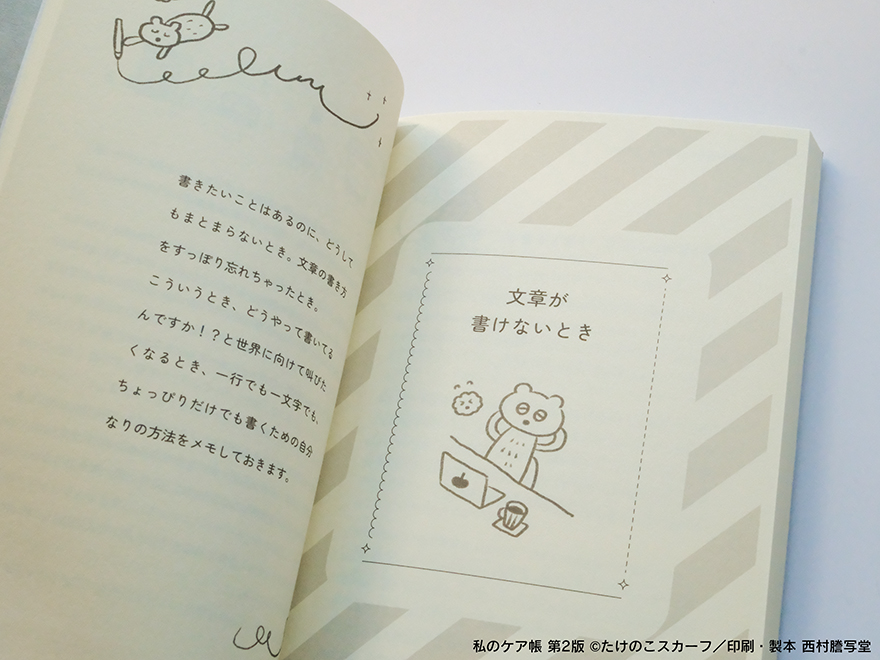 書きたいことはあるのに、どうして
もまとまらないとき。文章の書き方
をすっぽり忘れちゃったとき。
こういうとき、どうやって書いてる
んですか！？と世界に向けて叫びた
くなるとき、一行でも一文字でも、
ちょっぴりだけでも書くための自分
なりの方法をメモしておきます。
文章が
書けないとき
私のケア帳 第2版 ©たけのこスカーフ／印刷・製本 西村謄写堂